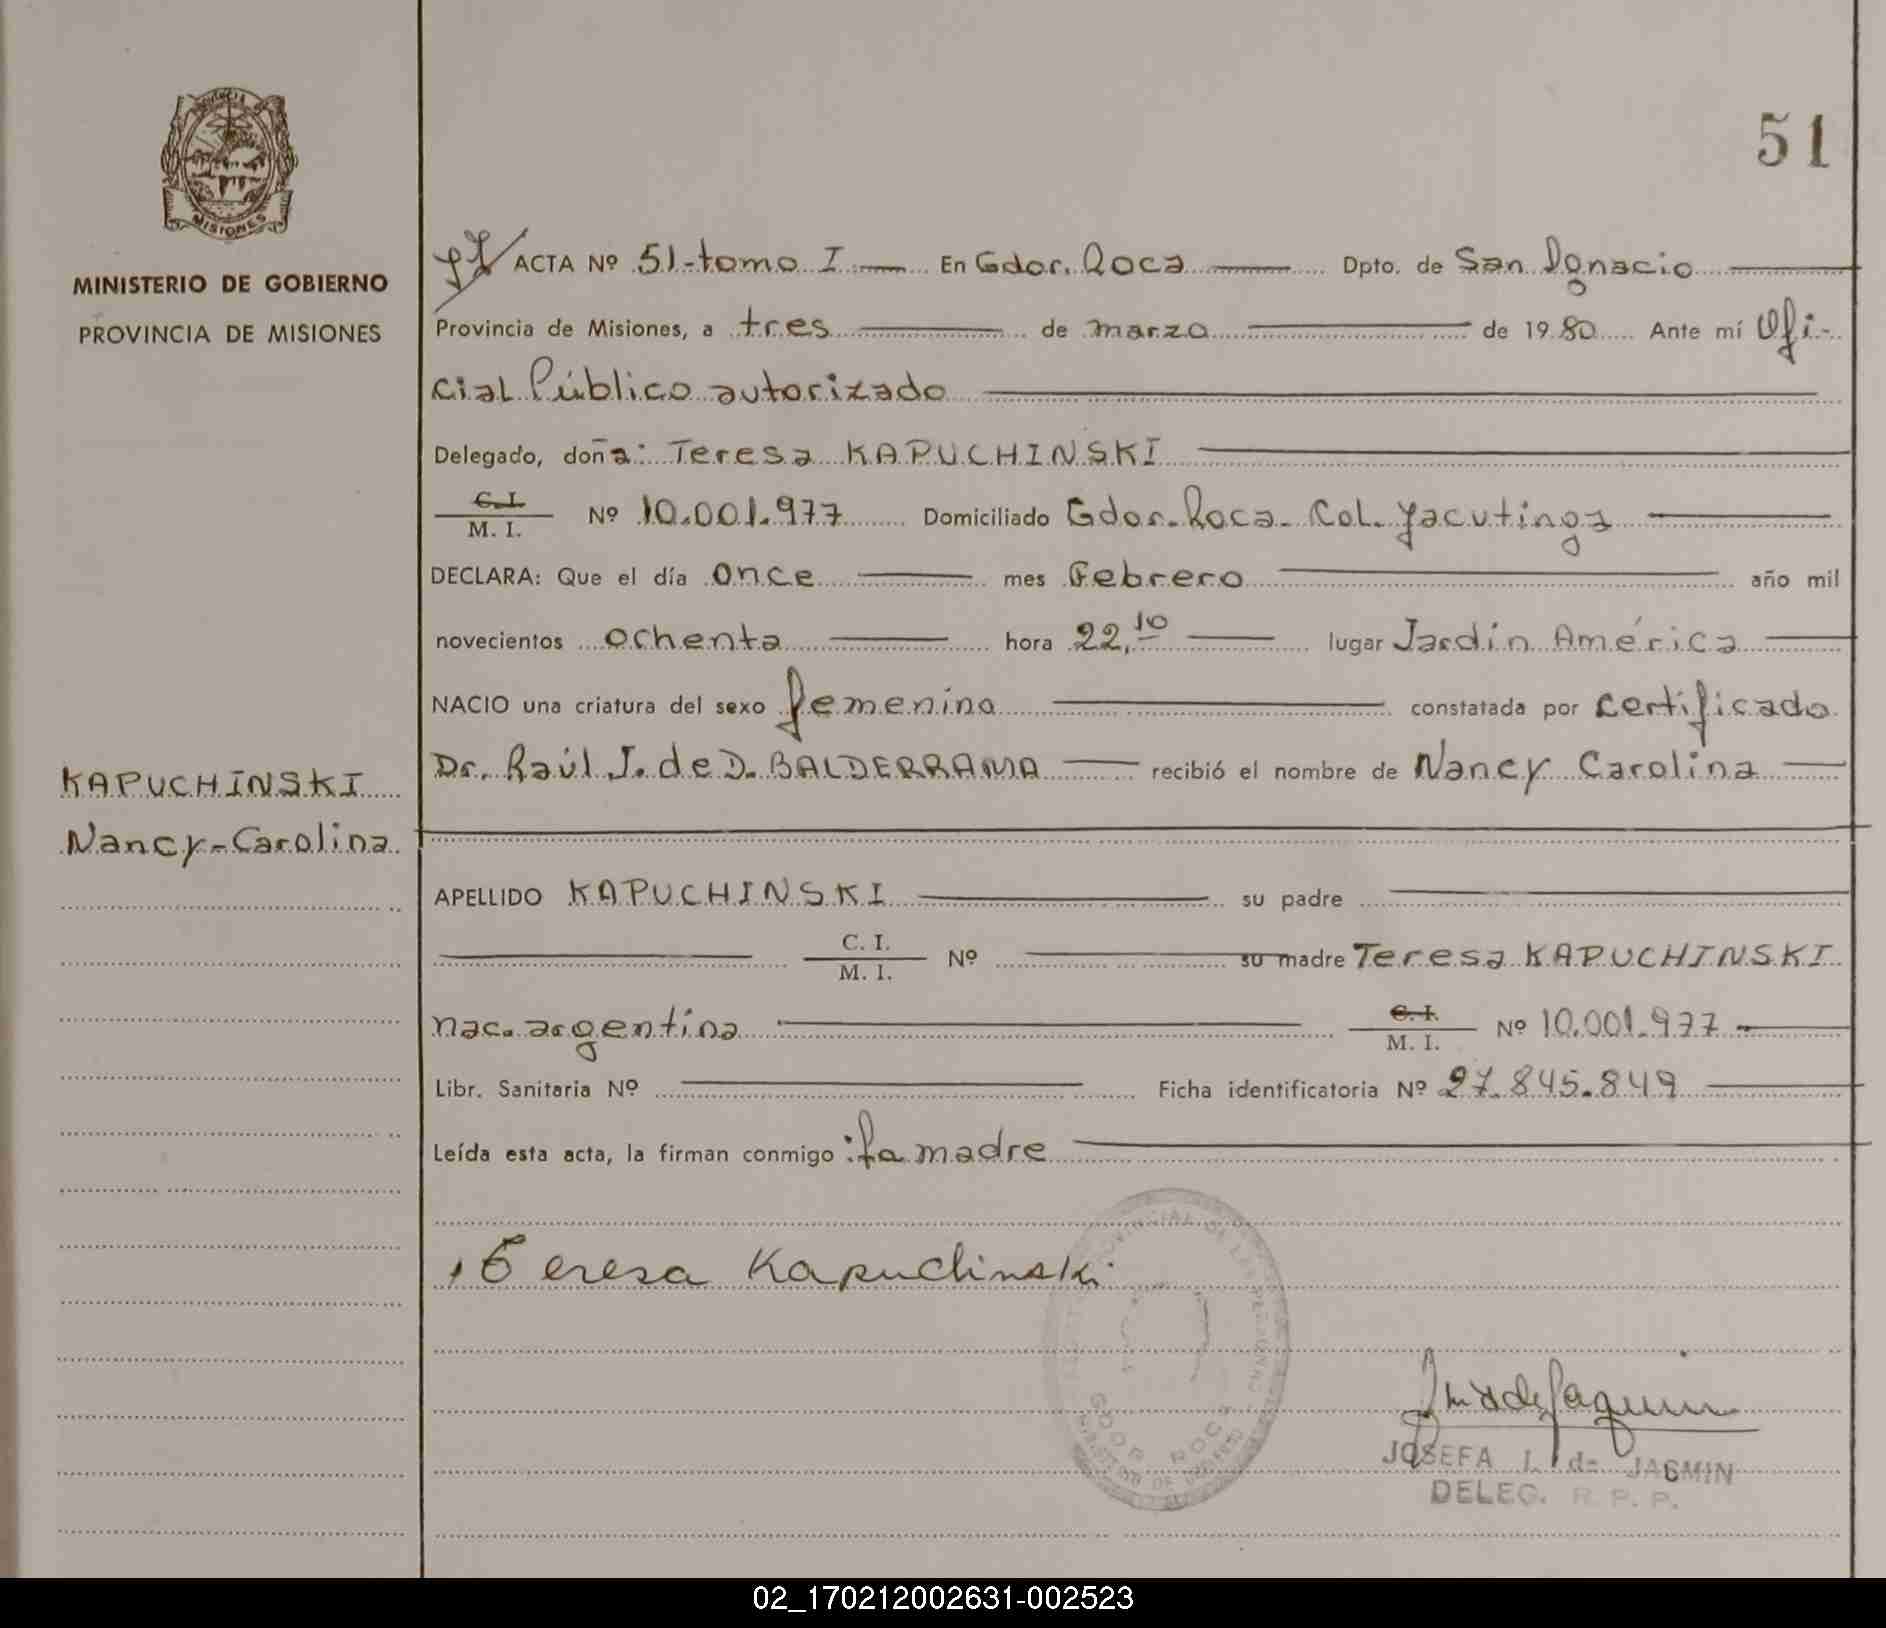 51
MISIONES
MINISTERIO DE GOBIERNO
PROVINCIA DE MISIONES
KAPUCHINSKI
Nancy-Carolina
ACTA Nº 51-tomo I En Gdor. Roca Dpto. de San Ignacio
Provincia de Misiones, a tres de marzo de 1980 Ante mí Ofi-
cial Público autorizado
Delegado, doña: Teresa KAPUCHINSKI
C.I. / M. I. Nº 10.001.977 Domiciliado Gdor. Roca- Col. Yacutinga
DECLARA: Que el día once mes Febrero año mil
novecientos ochenta hora 22,10 lugar Jardín América
NACIO una criatura del sexo femenino constatada por certificado
Dr. Raúl J. de D. BALDERRAMA recibió el nombre de Nancy Carolina
APELLIDO KAPUCHINSKI su padre
C. I. / M. I. Nº su madre Teresa KAPUCHINSKI
nac. argentina C. I. / M. I. Nº 10.001.977
Libr. Sanitaria Nº Ficha identificatoria Nº 27.845.849
Leída esta acta, la firman conmigo: la madre
Teresa Kapuchinski
PROVINCIAL DE LAS PERSONAS
GDOR ROCA
JOSEFA I. de JASMIN
DELEG. R. P. P.
02_170212002631-002523